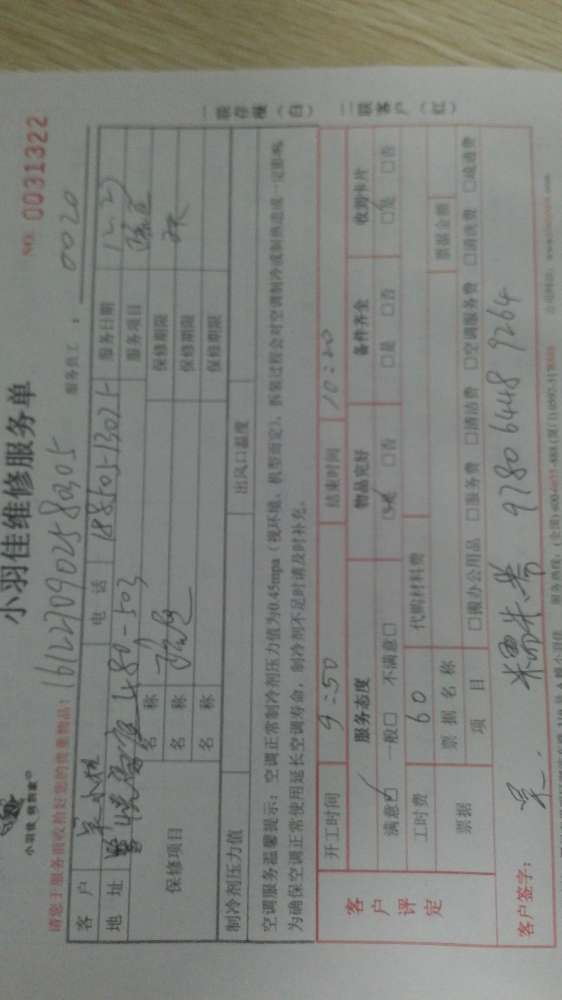 小羽佳维修服务单
NO: 0031322
小羽佳 棒到家
请您于服务前收拾好您的贵重物品: 1612270902580305 服务员工: 0020
客户 吴小姐 电话 18850513025 服务日期 12.27
地址 1480-503 服务项目
保修项目 名称 保修期限
名称 保修期限
名称 保修期限
制冷剂压力值 出风口温度
空调服务温馨提示: 空调正常制冷剂压力值为0.45mpa (视环境、机型而定), 拆装过程会对空调制冷或制热造成一定影响,
为确保空调正常使用延长空调寿命, 制冷剂不足时请及时补充。
开工时间 9:50 结束时间 10:20
客户评定 服务态度 物品完好 备件齐全 收到卡片
满意☑ 一般□ 不满意□ □是 □否 □是 □否 □是 □否
工时费 60 代购材料费
票据 票据名称 票据金额
项目 □搬办公用品 □服务费 □清洁费 □空调服务费 □清洗费 □疏通费
客户签字: 吴. 9780 6448 9264
一联存根(白) 二联客户(红)